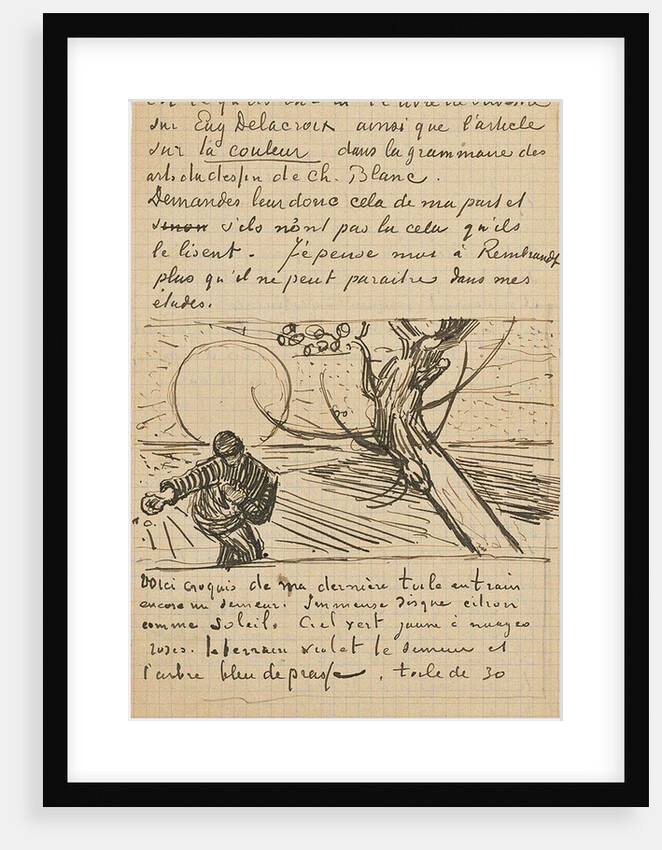 sur Eug Delacroix ainsi que l'article
sur la couleur dans la grammaire des
arts du dessin de Ch. Blanc.
Demandes leur donc cela de ma part et
sinon s'ils n'ont pas lu cela qu'ils
le lisent. Je pense moi à Rembrandt
plus qu'il ne peut paraitre dans mes
études.
Voici croquis de ma dernière toile en train
encore un semeur. Immense disque citron
comme soleil. Ciel vert jaune à nuages
roses. le terrain violet le semeur et
l'arbre bleu de prusse. toile de 30